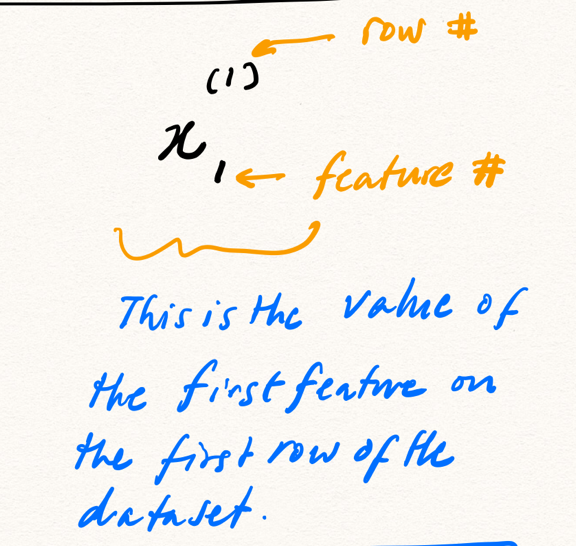 row #
(1)
x
1
feature #
This is the value of
the first feature on
the first row of the
dataset.